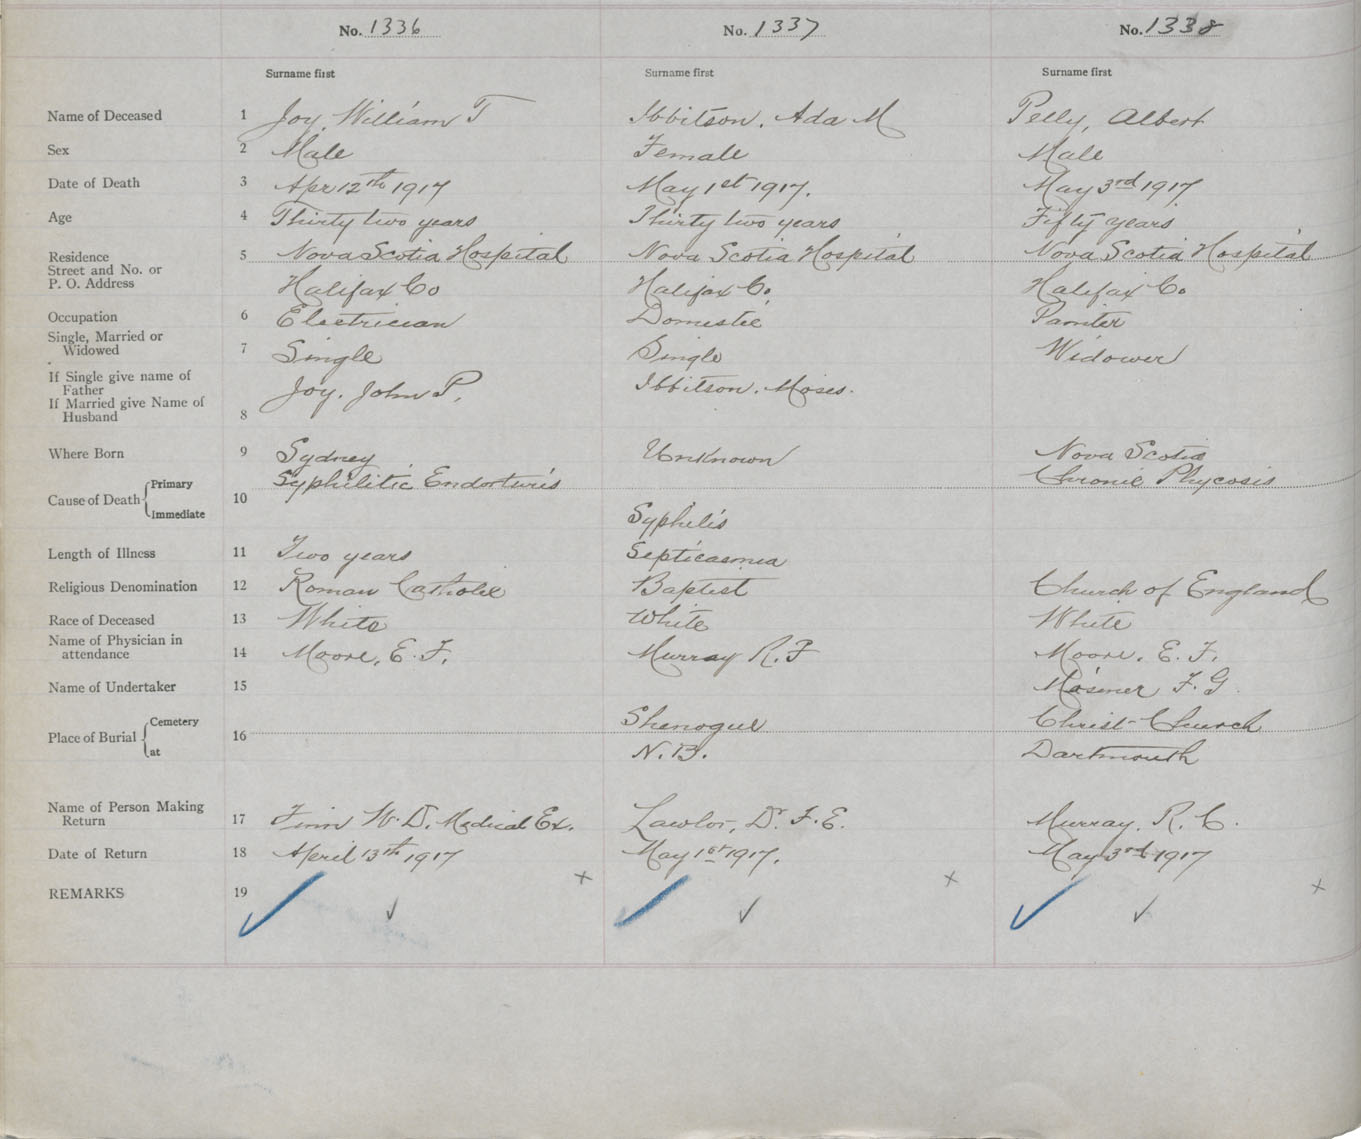 No. 1336 No. 1337 No. 1338
Surname first Surname first Surname first
Name of Deceased 1 Joy, William T Ibbitson, Ada M Pelly, Albert
Sex 2 Male Female Male
Date of Death 3 Apr 12th 1917 May 1st 1917. May 3rd 1917
Age 4 Thirty two years Thirty two years Fifty years
Residence 5 Nova Scotia Hospital Nova Scotia Hospital Nova Scotia Hospital
Street and No. or
P. O. Address Halifax Co Halifax Co. Halifax Co.
Occupation 6 Electrician Domestic Painter
Single, Married or
Widowed 7 Single Single Widower
If Single give name of
Father Joy, John P. Ibbitson, Moses.
If Married give Name of
Husband 8
Where Born 9 Sydney Unknown Nova Scotia
Primary Syphilitic Chronic Phycosis
Cause of Death 10
Immediate Syphilis
Length of Illness 11 Two years Septicaemia
Religious Denomination 12 Roman Catholic Baptist Church of England
Race of Deceased 13 White White White
Name of Physician in
attendance 14 Moore, E. F. Murray R. F Moore, E. F.
Name of Undertaker 15 F. G.
Cemetery Shenogue Christ Church
Place of Burial 16
at N. B. Dartmouth
Name of Person Making
Return 17 Finn W. D. Medical Ex. Lawlor, Dr F. E. Murray, R. C.
Date of Return 18 April 13th 1917 May 1st 1917. May 3rd 1917
REMARKS 19